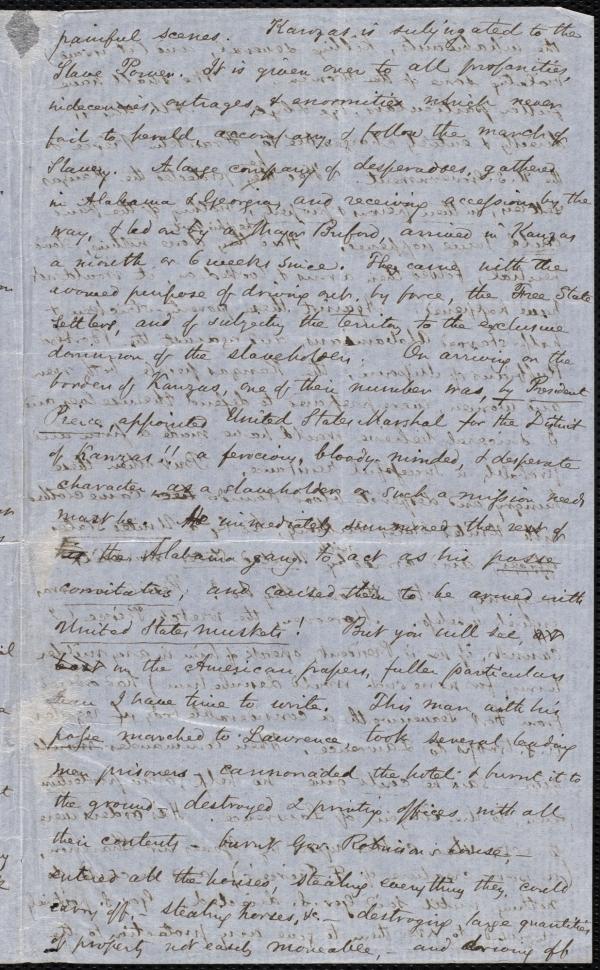 painful scenes. Kanzas is subjugated to the
Slave Power. It is given over to all profanities,
indecencies, outrages, & enormities which never
fail to herald accompany & follow the march of
Slavery. A large company of desperadoes, gathered
in Alabama & Georgia, and receiving accessions by the
way, & led on by a Major Buford, arrived in Kanzas
a month or 6 weeks since. They came with the
avowed purpose of driving out, by force, the Free State
Settlers, and of subjectg the territory to the exclusive
dominion of the slaveholders. On arriving on the
borders of Kanzas, one of their number was, by President
Pierce, appointed United States Marshal for the District
of Kanzas!! a ferocious, bloody minded, & desperate
character as a slaveholder on such a mission needs
must be. He immediately summoned the rest of
the Alabama gang to act as his posse
comitatus, and caused them to be armed with
United States muskets! But you will see,
in the American papers, fuller particulars
than I have time to write. This man with his
posse marched to Lawrence took several leading
men prisoners cannonaded the hotel & burnt it to
the ground – destroyed 2 printig offices with all
their contents – burnt Gov. Robinson's house, –
entered all the houses, stealing everything they could
carry off, – stealing horses, &c – destroying large quantities
of property not easily moveable, – and driving off